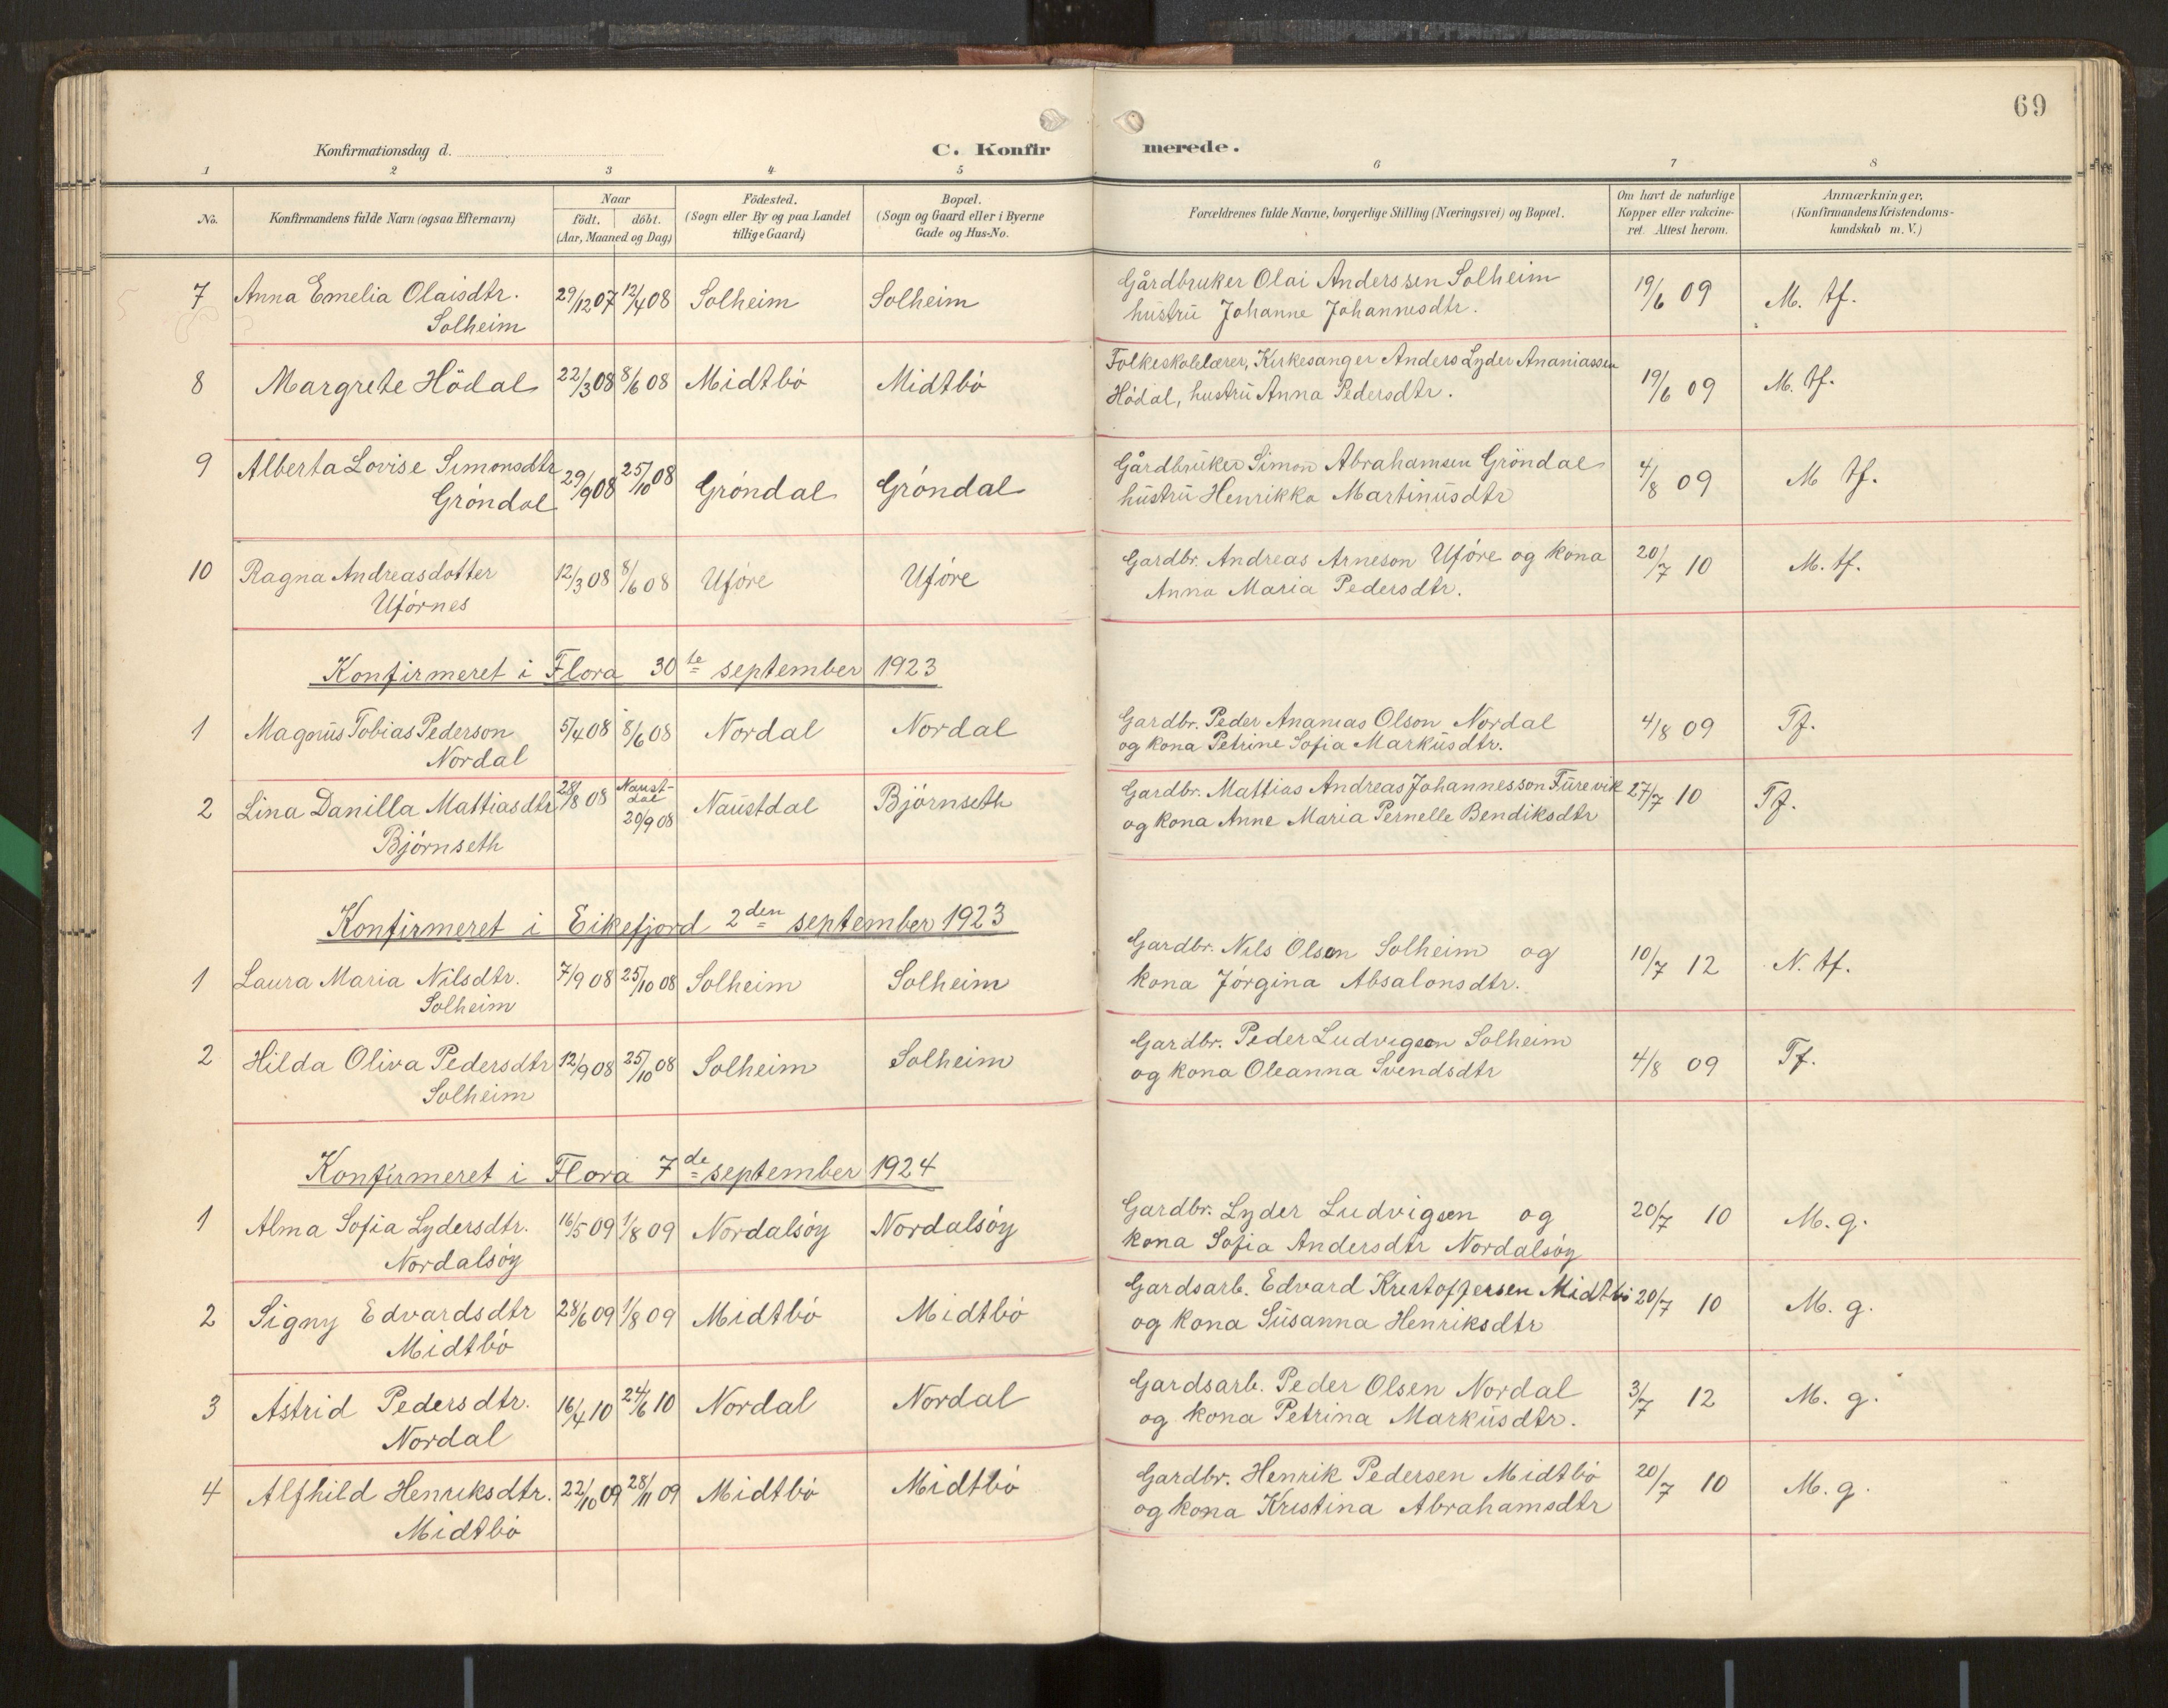 69
Konfirmationsdag d.
C. Konfirmerede.
1 2 3 4 5 6 7 8
No. Konfirmandens fulde Navn (ogsaa Efternavn) Naar födt. döbt. (Aar, Maaned og Dag) Födested. (Sogn eller By og paa Landet tillige Gaard) Bopæl. (Sogn og Gaard eller i Byerne Gade og Hus-No. Forældrenes fulde Navne, borgerlige Stilling (Næringsvei) og Bopæl. Om havt de naturlige Kopper eller vakcineret. Attest herom. Anmærkninger, (Konfirmandens Kristendomskundskab m. V.)
7 Anna Emelia Olaisdtr. 29/12 07 12/4 08 Solheim Solheim Gårdbruker Olai Anderssen Solheim 19/6 09 M. tf.
Solheim hustru Johanne Johannesdtr.
8 Margrete Hödal 22/3 08 8/6 08 Midtbö Midtbö Folkeskolelærer, Kirkesanger Anders Lyder Ananiassen 19/6 09 M. tf.
Hödal, hustru Anna Pedersdtr.
9 Alberta Lovise Simonsdtr 29/9 08 25/10 08 Gröndal Gröndal Gårdbruker Simon Abrahamsen Gröndal 4/8 09 M tf.
Gröndal hustru Henrikka Martinusdtr
10 Ragna Andreasdotter 12/3 08 8/6 08 Uföre Uföre Gardbr. Andreas Arneson Uföre og kona 20/7 10 M. tf.
Uförnes Anna Maria Pedersdtr.
Konfirmeret i Flora 30te september 1923
1 Magnus Tobias Pederson 5/4 08 8/6 08 Nordal Nordal Gardbr. Peder Ananias Olson Nordal 4/8 09 Tf.
Nordal og kona Petrine Sofia Markusdtr.
2 Lina Danilla Mattiasdtr 28/8 08 Naustdal 20/9 08 Naustdal Björnseth Gardbr. Mattias Andreas Johannesson Furevik 27/7 10 Tf.
Björnseth og kona Anne Maria Pernelle Bendiksdtr
Konfirmeret i Eikefjord 2den september 1923
1 Laura Maria Nilsdtr. 7/9 08 25/10 08 Solheim Solheim Gardbr. Nils Olson Solheim og 10/7 12 N. tf.
Solheim kona Jörgina Absalonsdtr.
2 Hilda Oliva Pedersdtr 12/9 08 25/10 08 Solheim Solheim Gardbr. Peder Ludvigson Solheim 4/8 09 Tf.
Solheim og kona Oleanna Svendsdtr
Konfirmeret i Flora 7de september 1924
1 Alma Sofia Lydersdtr. 16/5 09 1/8 09 Nordalsöy Nordalsöy Gardbr. Lyder Ludvigsen og 20/7 10 M. g.
Nordalsöy kona Sofia Andersdtr Nordalsöy
2 Signy Edvardsdtr 28/6 09 1/8 09 Midtbö Midtbö Gardsarb. Edvard Kristoffersen Midtbö 20/7 10 M. g.
Midtbö og kona Susanna Henriksdtr
3 Astrid Pedersdtr. 16/4 10 24/6 10 Nordal Nordal Gardsarb. Peder Olsen Nordal 3/7 12 M. g.
Nordal og kona Petrina Markusdtr.
4 Alfhild Henriksdtr. 22/10 09 28/11 09 Midtbö Midtbö Gardbr. Henrik Pedersen Midtbö 20/7 10 M. g.
Midtbö og kona Kristina Abrahamsdtr